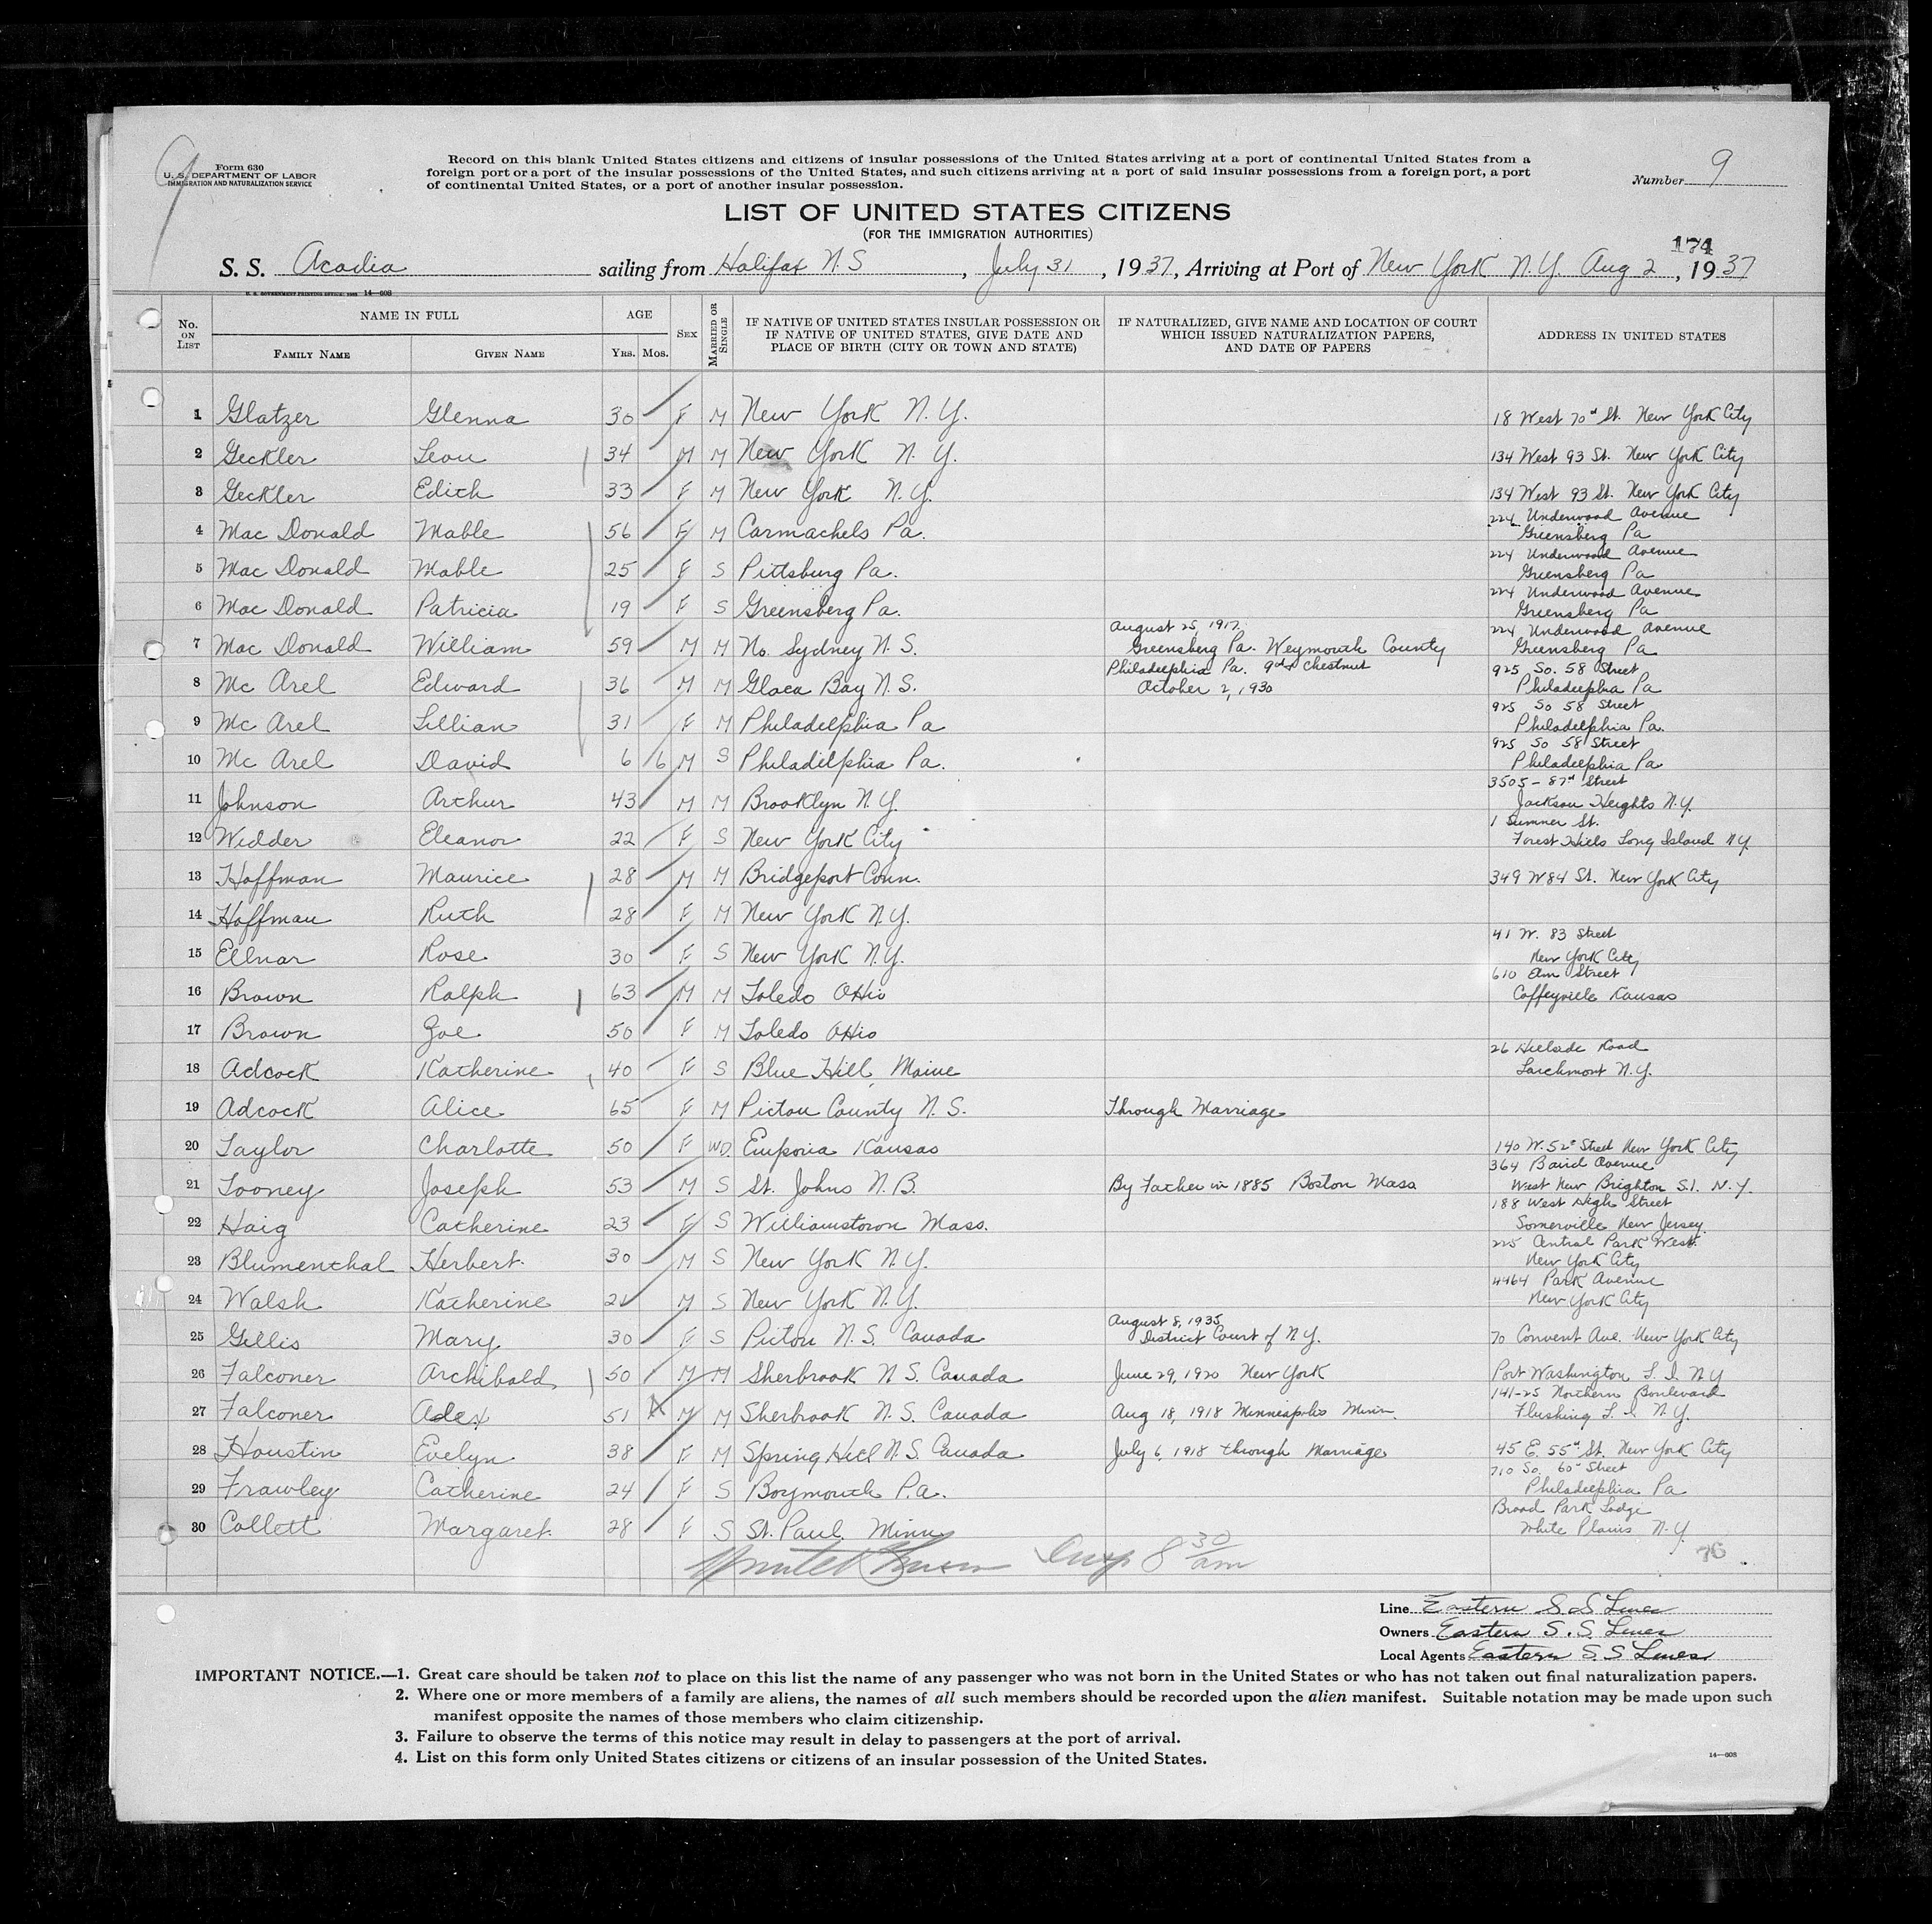 9
Form 630
U. S. DEPARTMENT OF LABOR
IMMIGRATION AND NATURALIZATION SERVICE
Record on this blank United States citizens and citizens of insular possessions of the United States arriving at a port of continental United States from a
foreign port or a port of the insular possessions of the United States, and such citizens arriving at a port of said insular possessions from a foreign port, a port
of continental United States, or a port of another insular possession.
Number 9
LIST OF UNITED STATES CITIZENS
(FOR THE IMMIGRATION AUTHORITIES)
174
S. S. Acadia sailing from Halifax N.S , July 31 , 1937, Arriving at Port of New York N.Y. Aug 2 , 1937
U. S. GOVERNMENT PRINTING OFFICE 14—608
No. ON LIST
NAME IN FULL
FAMILY NAME GIVEN NAME
AGE
YRS. MOS.
SEX
MARRIED OR SINGLE
IF NATIVE OF UNITED STATES INSULAR POSSESSION OR
IF NATIVE OF UNITED STATES, GIVE DATE AND
PLACE OF BIRTH (CITY OR TOWN AND STATE)
IF NATURALIZED, GIVE NAME AND LOCATION OF COURT
WHICH ISSUED NATURALIZATION PAPERS,
AND DATE OF PAPERS
ADDRESS IN UNITED STATES
1 Glatzer Glenna 30 F M New York N.Y. 18 West 70 St. New York City
2 Geckler Leon 34 M M New York N.Y. 134 West 93 St. New York City
3 Geckler Edith 33 F M New York N.Y. 134 West 93 St. New York City
4 Mac Donald Mable 56 F M Carmachels Pa. 224 Underwood Avenue
Greensberg Pa
5 Mac Donald Mable 25 F S Pittsburg Pa. 224 Underwood Avenue
Greensberg Pa
6 Mac Donald Patricia 19 F S Greensberg Pa. 224 Underwood Avenue
Greensberg Pa
7 Mac Donald William 59 M M No. Sydney N.S. August 25, 1917.
Greensberg Pa. Weymouth County
224 Underwood Avenue
Greensberg Pa
8 Mc Arel Edward 36 M M Glaca Bay N.S. Philadelphia Pa. 9th Chestnut
October 2, 1930
925 So. 58 Street
Philadelphia Pa
9 Mc Arel Lillian 31 F M Philadelphia Pa 925 So 58 Street
Philadelphia Pa.
10 Mc Arel David 6 6 M S Philadelphia Pa. 925 So 58 Street
Philadelphia Pa
11 Johnson Arthur 43 M M Brooklyn N.Y. 3505 - 87 Street
Jackson Heights N.Y.
12 Widder Eleanor 22 F S New York City 1 Sumner St.
Forest Hills Long Island N.Y.
13 Hoffman Maurice 28 M M Bridgeport Conn. 349 W 84 St. New York City
14 Hoffman Ruth 28 F M New York N.Y.
15 Ellnar Rose 30 F S New York N.Y. 41 W. 83 Street
New York City
16 Brown Ralph 63 M M Toledo Ohio 610 Elm Street
Coffeyville Kansas
17 Brown Zoe 50 F M Toledo Ohio
18 Adcock Katherine 40 F S Blue Hill, Maine 26 Hillside Road
Larchmont N.Y.
19 Adcock Alice 65 F M Pictou County N.S. Through Marriage
20 Taylor Charlotte 50 F WD. Emporia Kansas 140 W. 52 Street New York City
21 Looney Joseph 53 M S St. Johns N.B. By Father in 1885 Boston Mass 364 Baird Avenue
West New Brighton S.I. N.Y.
22 Haig Catherine 23 F S Williamstown Mass. 188 West High Street
Somerville New Jersey
23 Blumenthal Herbert 30 M S New York N.Y. 225 Central Park West
New York City
24 Walsh Katherine 21 M S New York N.Y. 4464 Park Avenue
New York City
25 Gillis Mary 30 F S Pictou N.S. Canada August 8, 1935
District Court of N.Y.
70 Convent Ave. New York City
26 Falconer Archibald 50 M M Sherbrook N.S. Canada June 29, 1920 New York Port Washington L.I. N.Y
27 Falconer Alex 51 M M Sherbrook N.S. Canada Aug 18, 1918 Minneapolis Minn. 141-25 Northern Boulevard
Flushing L.I. N.Y.
28 Houstin Evelyn 38 F M Spring Hill N.S. Canada July 6, 1918 through Marriage 45 E. 55 St. New York City
29 Frawley Catherine 24 F S Boymouth Pa. 710 So. 60 Street
Philadelphia Pa
30 Collett Margaret 28 F S St. Paul Minn Broad Park Lodge
White Plains N.Y.
Insp 8 30 am
76
Line Eastern S.S Lines
Owners Eastern S.S. Lines
Local Agents Eastern S S Lines
IMPORTANT NOTICE.—1. Great care should be taken not to place on this list the name of any passenger who was not born in the United States or who has not taken out final naturalization papers.
2. Where one or more members of a family are aliens, the names of all such members should be recorded upon the alien manifest. Suitable notation may be made upon such
manifest opposite the names of those members who claim citizenship.
3. Failure to observe the terms of this notice may result in delay to passengers at the port of arrival.
4. List on this form only United States citizens or citizens of an insular possession of the United States.
14—608